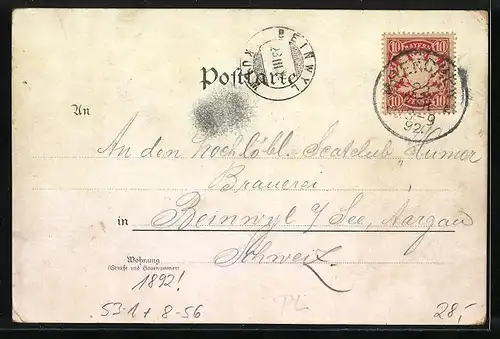 10 BAYERN 10
10 10
BEINWYL
23 III
Postkarte
An
An den hochlöbl. Scatclub "Humor
Brauerei
in Beinwyl a/ See, Aargau
Schweiz
Wohnung
(Straße und Hausnummer)
1892!
53-1 + 8-56
PL
28,-